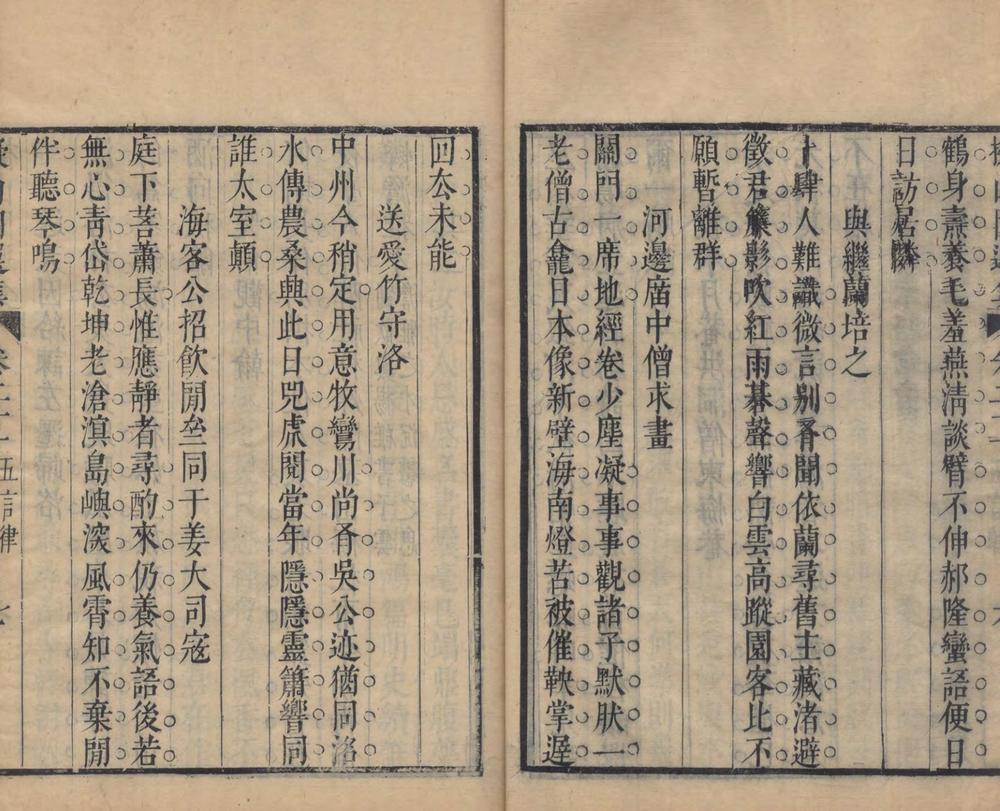 鶴身壽養毛羞燕淸談臂不伸郝隆蠻語便日
日訪居隣
與繼蘭培之
十肆人難識微言别有聞依蘭尋舊主藏渚避
徵君簾影吹紅雨棊聲響白雲高蹤園客比不
願暫離群
河邊庿中僧求畫
關門一席地經卷少塵凝事事觀諸子默肰一
老僧古龕日本像新壁海南燈苦被催鞅掌遲
回厺未能
送愛竹守洛
中州今稍定用意牧鸞川尚有吳公迹猶同洛
水傳農桑興此日兕虎閱當年隱隱靈簫響同
誰太室顛
海客公招飲閒坐同于姜大司寇
庭下菩蕭長惟應靜者尋酌來仍養氣語後若
無心靑岱乾坤老滄溟島嶼㴱風霄知不棄閒
伴聽琴鳴
卷二十一 五言律 七